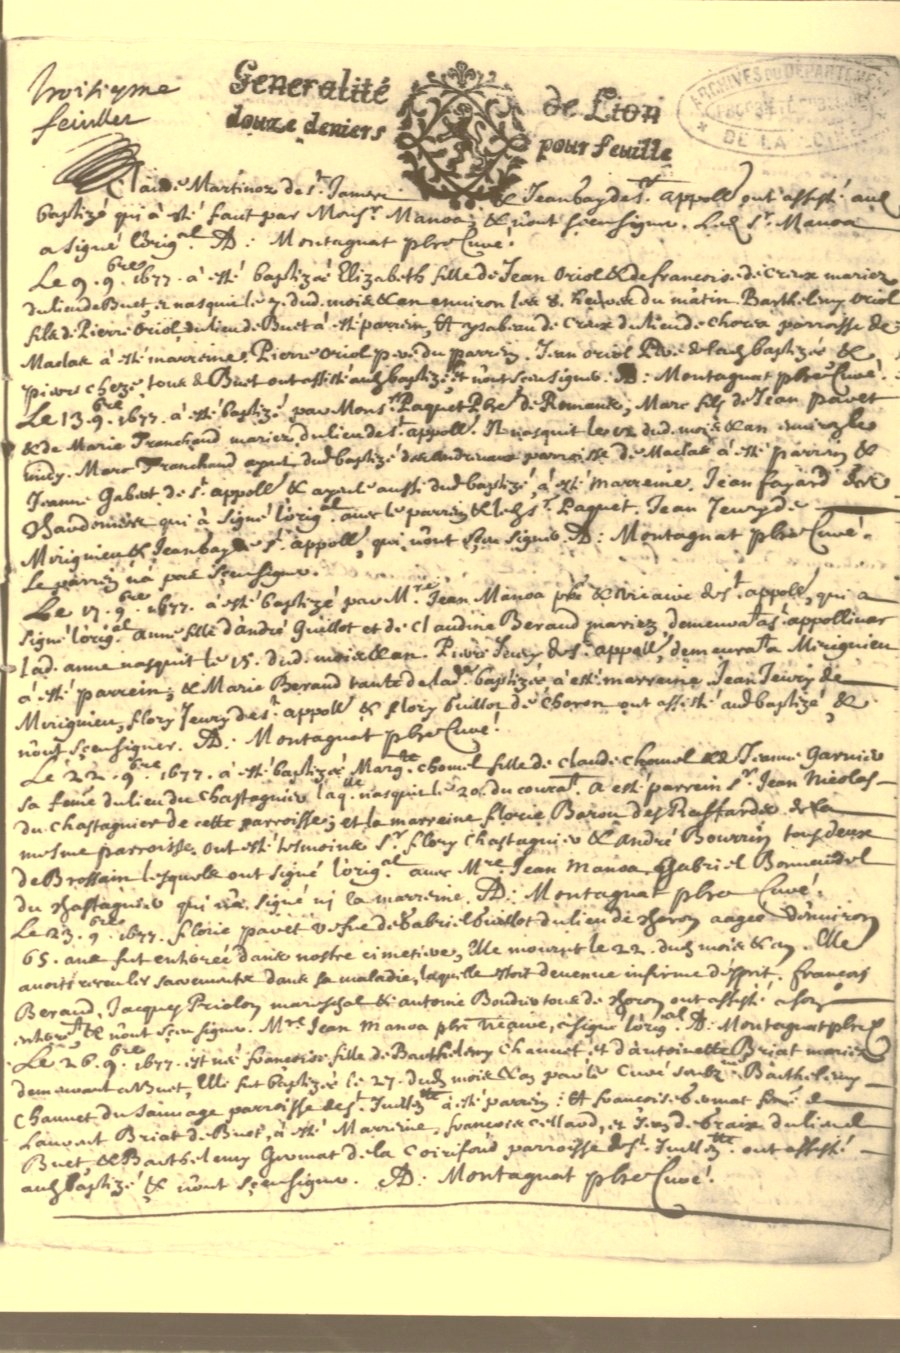 troisieme
feuillet
Generalité de Lion
douze deniers pour feuille
ARCHIVES DU DÉPARTEMENT
DE LA LOIRE
Claude Martinoz de st. & Jean bay de st. appoll ont assisté aud
baptizé qui à esté faut par Monsr. Manoa, & n'ont sceu signer. Led sr. Manoa
a signé l'orig.al AD: Montagnat pbre Curé.
Le 9. 9.bre 1677. à esté baptizée Elizabeth fille de Jean oriol & de francoise de Creux mariez
du lieu de Buet, et nasquit le 7. dud. mois & an environ les 8. heures du matin. Barthelemy oriol
fils de Pierre oriol du lieu de Buet à esté parrein, Et ysabeau de Creux du lieu de Choren parroisse de
Maclas à esté marreine. Pierre oriol p. du parrein. Jean oriol Pere de lad baptizée &
pierre cheze, tous de Buet ont assisté aud baptizé, et n'ont sceu signer. AD: Montagnat pbre Curé.
Le 13. 9.bre 1677. à esté baptizé par Monsr. Paquet Pbre de Romans, Marc fils de Jean pavet
& de Marie Franchand mariez du lieu de st. appoll. Il nasquit le 12 dud. mois & an environ les
midy. Marc Franchand ayeul dud baptizé parroisse de Maclas à esté parrein &
Jeanne Gabert de st. appoll & ayeule aussi dud baptizé, à esté marreine. Jean fayard
qui à signé l'orig.al avec le parrein & led sr. Paquet. Jean Jeury de
Mirignieu & Jean bay de st. appoll, qui n'ont sceu signer AD: Montagnat pbre Curé.
Le parrein n'a pas sceu signer.
Le 17. 9.bre 1677. à esté baptizée par Mre. Jean Manoa pbre & vicaire de st. appoll, qui a
signé l'orig.al anne fille d'andré Guillot et de Claudine Beraud mariez demeurat. à st. appollinar
lad. anne nasquit le 15. dud. mois & an. Pierre Jeury de st. appoll, demeurat. a Mirignieu
à esté parrein, & Marie Beraud tante de lad. baptizée à esté marreine. Jean Jeury de
Mirignieu, flory Jeury de st. appoll & flory Guillot de Choron ont assisté aud baptizé, &
n'ont sceu signer. AD: Montagnat pbre Curé.
Le 22. 9.bre 1677. à esté baptizée Margte. chomel fille de Claude chomel & de Jeanne Garnier
sa feme du lieu du Chastagnier laq.lle nasquit le 20. du courat. a esté parrein sr. Jean Nicolas
du chastagnier de cette parroisse, et la marreine florie Boron des Reiffards de la
mesme parroisse. ont esté tesmoins sr. flory Chastagnier & andré Bourrin tous deux
de Brossain lesquels ont signé l'orig.al avec Mre. Jean Manoa. Gabriel Bonnaudel
du chastagnier qui n'a signé nj la marreine. AD: Montagnat pbre Curé.
Le 23. 9.bre 1677. florie pavet vefve de Gabriel Guillot du lieu de choron aagée d'environ
65. ans fut enterrée dans nostre cimetiere, Elle mourut le 22. dud mois & an. Elle
avoit receu les sacrements dans sa maladie, laquelle estoit devenue infirme d'esprit. francois
Beraud, Jacques Priolon mareschal & antoine Boudri tous de choron ont assisté a son
enterrt. & n'ont sceu signer. Mre. Jean Manoa pbre vicaire, a signé l'orig.al AD: Montagnat pbre C
Le 26. 9.bre 1677. est née francoise fille de Barthelemy Chauvet, et d'antoinette Briat mariez
demeurant a Buet, Elle fut baptizée le 27. dud mois & an par le Curé soubz. Barthelemy
Chauvet du sauvage parroisse de st. Jullien à esté parrein: Et francoise Grumat feme de
Laurent Briat de Buet, à esté Marreine, francois Cellard, et Jean de braix du lieu de
Buet & Barthelemy Grumat de la Coirifoud parroisse de st. Jullien. ont assisté
aud baptizé & n'ont sceu signer. AD: Montagnat pbre Curé.